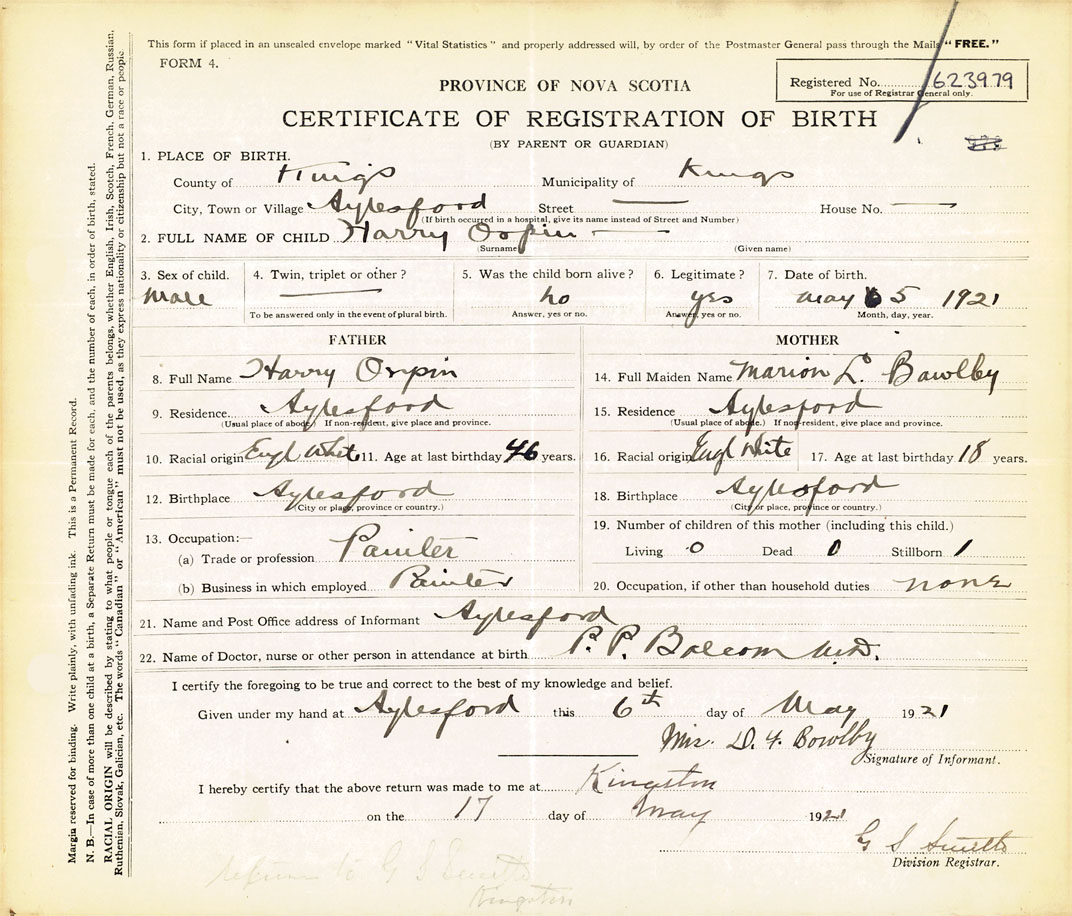 This form if placed in an unsealed envelope marked "Vital Statistics" and properly addressed will, by order of the Postmaster General pass through the Mails "FREE."
FORM 4.
Registered No. 623979
For use of Registrar General only.
PROVINCE OF NOVA SCOTIA
CERTIFICATE OF REGISTRATION OF BIRTH
(BY PARENT OR GUARDIAN)
1. PLACE OF BIRTH.
County of Kings Municipality of Kings
City, Town or Village Aylesford Street — House No. —
(If birth occurred in a hospital, give its name instead of Street and Number)
2. FULL NAME OF CHILD Harry Orpin —
(Surname) (Given name)
3. Sex of child. 4. Twin, triplet or other? 5. Was the child born alive? 6. Legitimate? 7. Date of birth.
Male — no yes May 5 1921
To be answered only in the event of plural birth. Answer, yes or no. Answer, yes or no. Month, day, year.
FATHER MOTHER
8. Full Name Harry Orpin 14. Full Maiden Name Marion L. Bowlby
9. Residence Aylesford 15. Residence Aylesford
(Usual place of abode.) If non-resident, give place and province. (Usual place of abode.) If non-resident, give place and province.
10. Racial origin Engl White 11. Age at last birthday 46 years. 16. Racial origin Engl White 17. Age at last birthday 18 years.
12. Birthplace Aylesford 18. Birthplace Aylesford
(City or place, province or country.) (City or place, province or country.)
13. Occupation:— 19. Number of children of this mother (including this child.)
(a) Trade or profession Painter Living 0 Dead 0 Stillborn 1
(b) Business in which employed Painter 20. Occupation, if other than household duties none
21. Name and Post Office address of Informant Aylesford
22. Name of Doctor, nurse or other person in attendance at birth P. P. Balcom M.D.
I certify the foregoing to be true and correct to the best of my knowledge and belief.
Given under my hand at Aylesford this 6th day of May 1921
Mrs. D. Y. Bowlby
Signature of Informant.
I hereby certify that the above return was made to me at Kingston
on the 17 day of May 1921
G S Smith
Division Registrar.
to G S
Kingston
Margin reserved for binding. Write plainly, with unfading ink. This is a Permanent Record.
N. B.—In case of more than one child at a birth, a Separate Return must be made for each, and the number of each, in order of birth, stated.
RACIAL ORIGIN will be described by stating to what people or tongue each of the parents belongs, whether English, Irish, Scotch, French, German, Russian,
Ruthenian, Slovak, Galician, etc. The words "Canadian" or "American" must not be used, as they express nationality or citizenship but not a race or people.